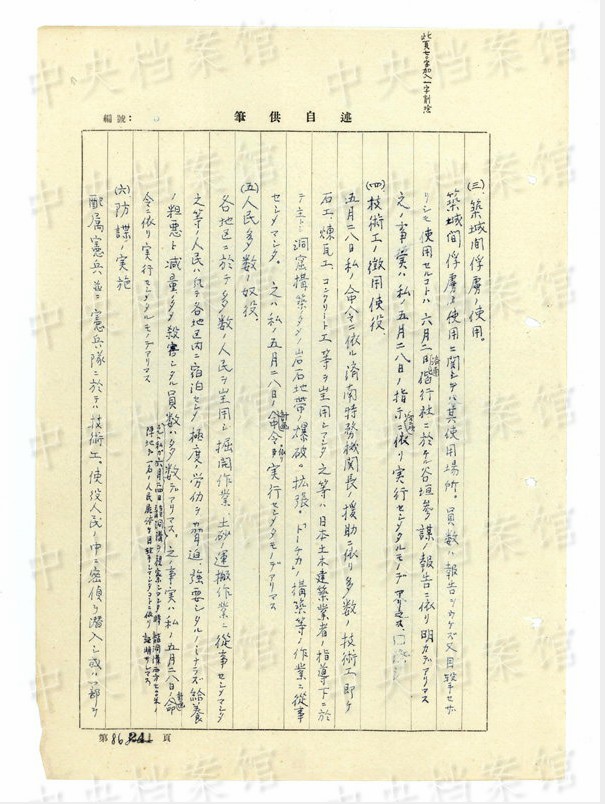 中央档案馆
此頁七字加入一字削除
筆供自述
編號:
(三)、築城間俘虜ノ使用。
築城間俘虜ノ使用ニ関シテハ其使用場所。員数ハ報告ヲウケズ又目撃セザ
リシモ使用セルコトハ六月二日済南偕行社ニ於テ谷垣参謀ノ報告ニ依リ明カデアリマス
之ノ事実ハ私ノ五月二八日ノ指示ニ依リ実行センメタルモノデアリマス
(四)技術工ノ徴用使役、
五月二八日私ノ命令ニ依ル済南特務機関長ノ援助ニ依リ多数ノ技術工即チ
石工、煉瓦工、コンクリート工等ヲ雇用シマシタ之等ハ日本土木建築業者ノ指導下ニ於
テ主トシテ洞窟構築ノタメノ岩石地帯ノ爆破。拡張。トーチカノ構築等ノ作業ニ從事
センメマシタ。之ハ私ノ五月二八日ノ計画命令ニ依リ実行センメタモノデアリマス
(五)人民多数ノ奴役、
各地区ニ於テ多数ノ人民ヲ雇用シ掘開作業、土砂ノ運搬作業ニ從事センメマシタ
之等ノ人民ハ凡テ各地区内ニ宿泊センメ極度ノ労働ヲ強要シタルノミナラズ給養
ノ粗悪ト減量
殺害シタル員数ハ多数デアリマス。之ノ事実ハ私ノ五月二八日ノ計画命
令ニ依リ実行センメタルモノデアリマス
(六)防諜ノ実施
配属憲兵並ニ憲兵隊ニ於テハ技術工、使役人民ノ中ニ密偵ヲ潜入シ或ハ一部ヲ
第86頁